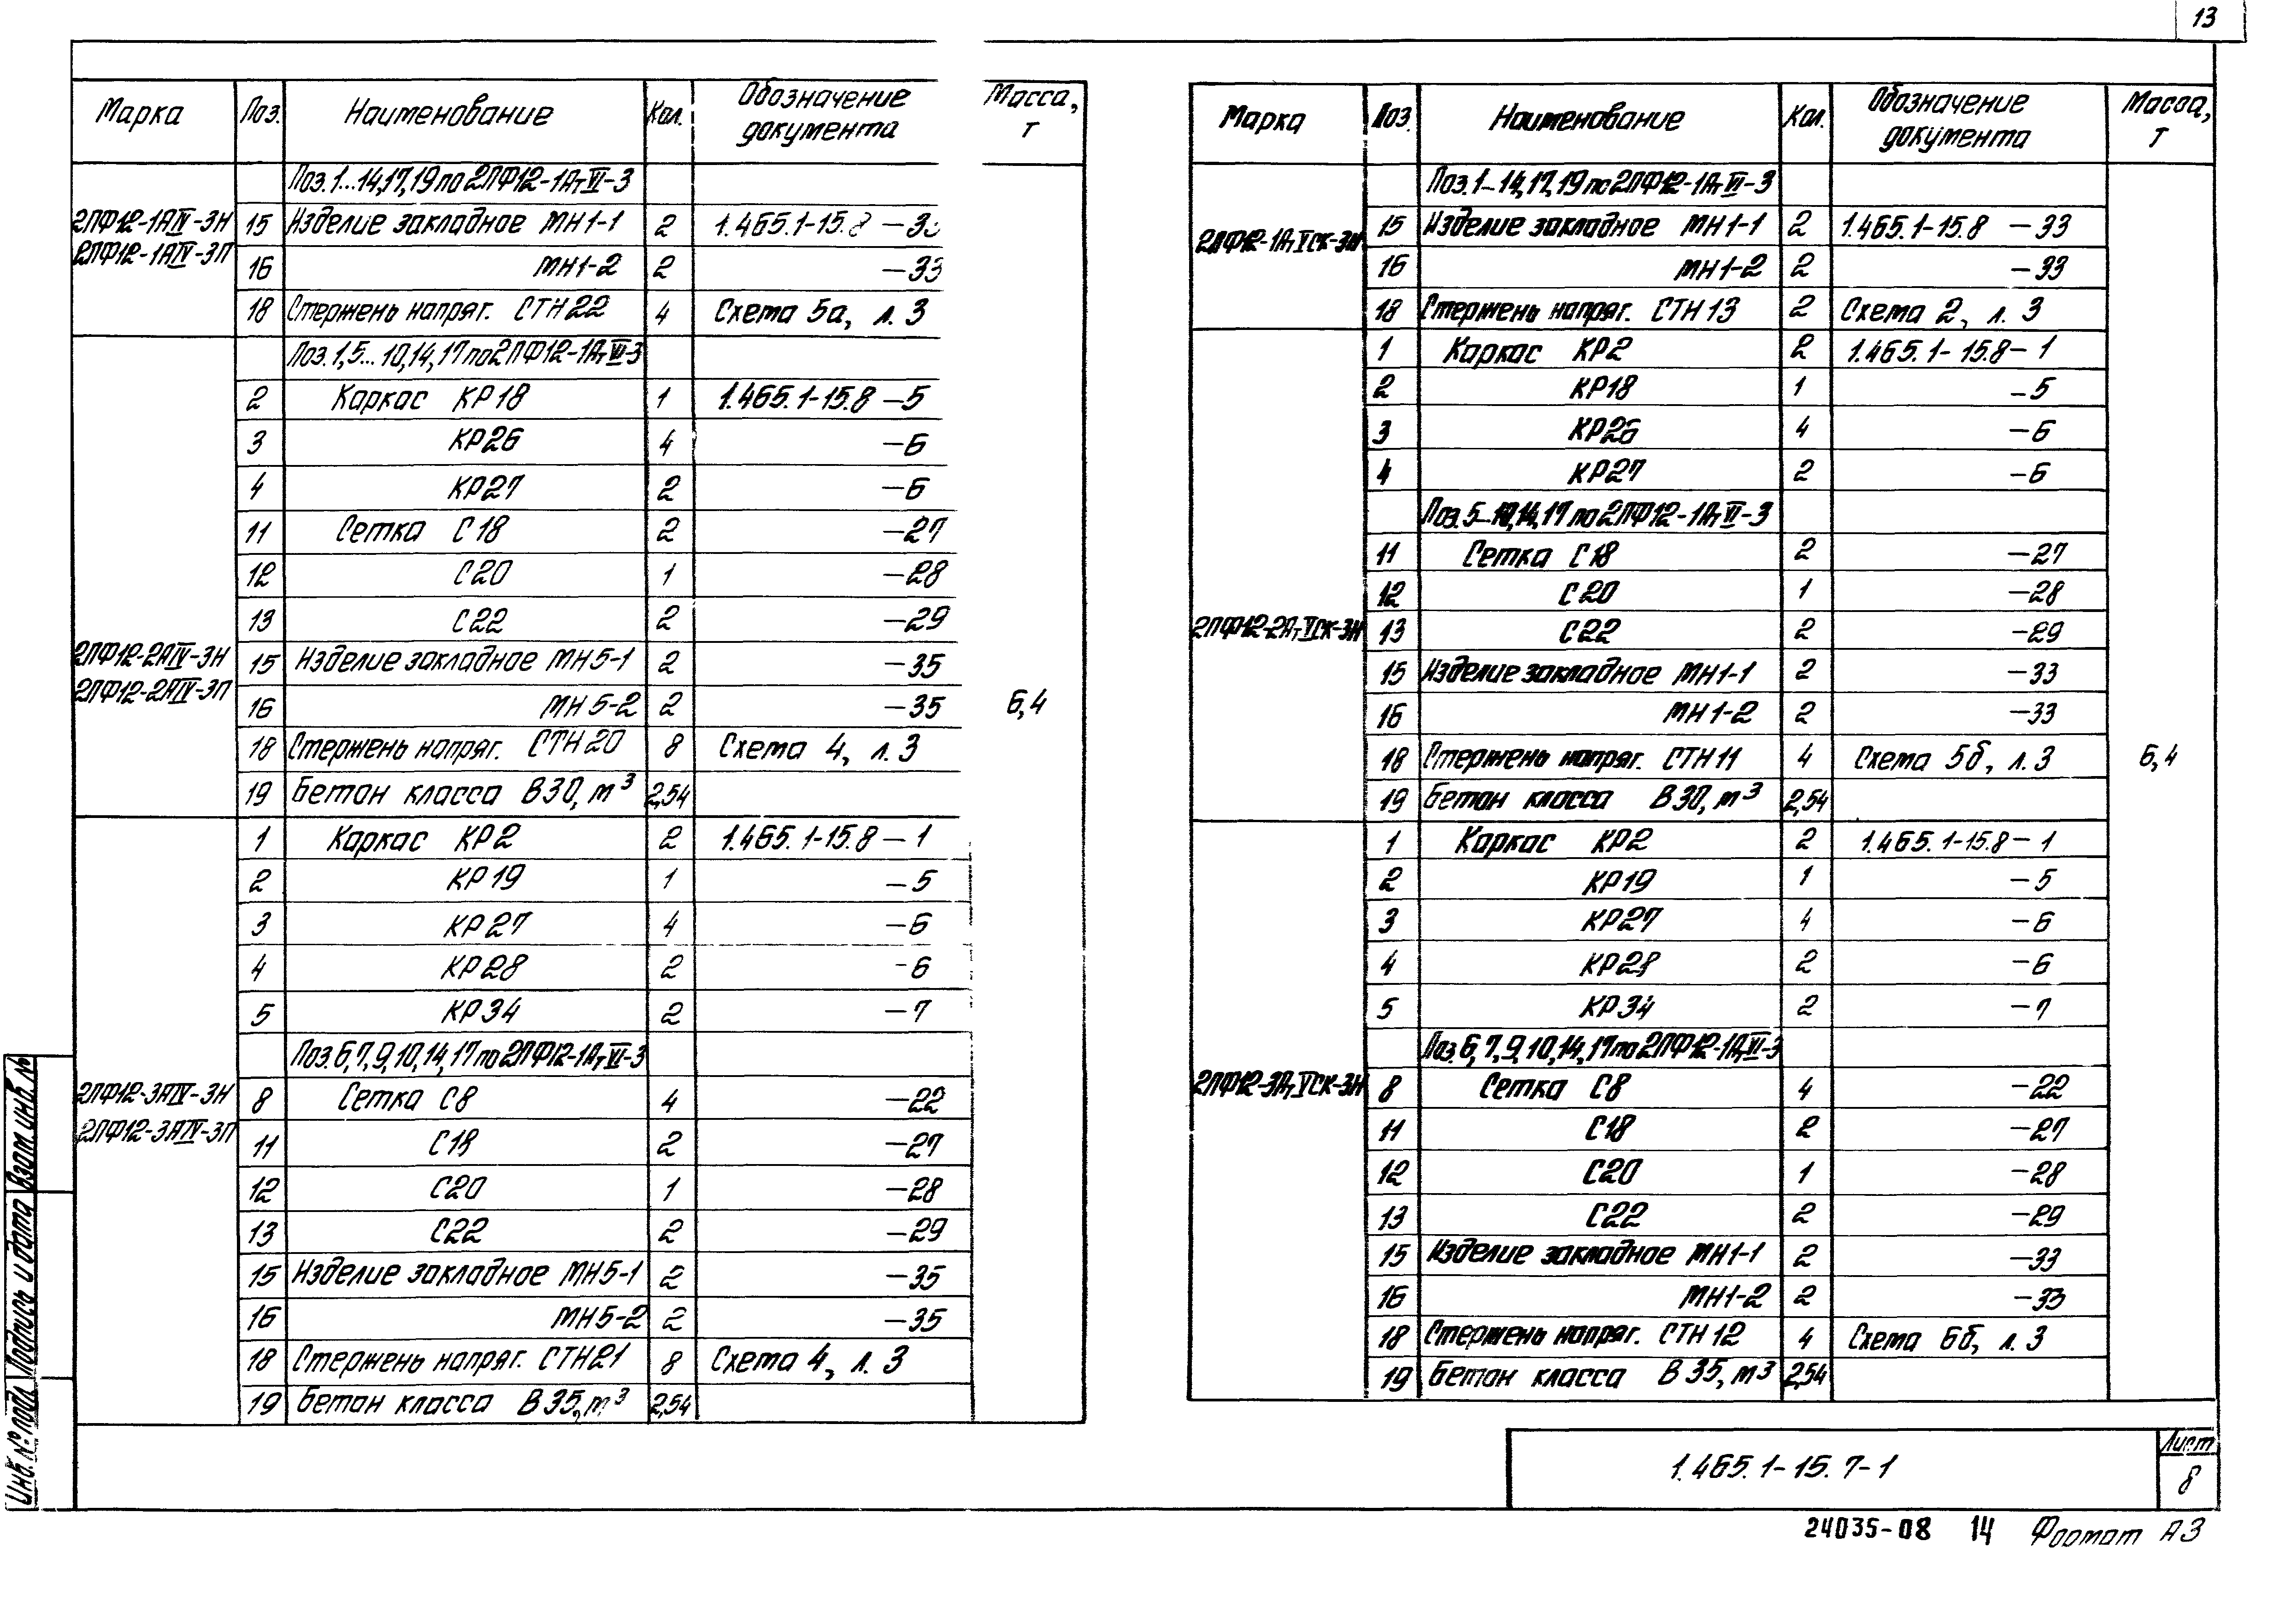 13
Марка Поз. Наименование Кол. Обозначение документа Масса, т
Поз. 1...14,17,19 по 2ПФ12-1АтVI-3
2ПФ12-1АIV-3Н
2ПФ12-1АIV-3П
15 Изделие закладное МН1-1 2 1.465.1-15.8 -33
16 МН1-2 2 -33
18 Стержень напряг. СТН22 4 Схема 5а, л. 3
Поз. 1,5...10,14,17 по 2ПФ12-1АтVI-3
2 Каркас КР18 1 1.465.1-15.8 -5
3 КР26 4 -6
4 КР27 2 -6
11 Сетка С18 2 -27
12 С20 1 -28
13 С22 2 -29
2ПФ12-2АIV-3Н
2ПФ12-2АIV-3П
15 Изделие закладное МН5-1 2 -35
16 МН5-2 2 -35 6,4
18 Стержень напряг. СТН20 8 Схема 4, л. 3
19 Бетон класса В30, м³ 2,54
1 Каркас КР2 2 1.465.1-15.8 - 1
2 КР19 1 -5
3 КР27 4 -6
4 КР28 2 -6
5 КР34 2 -7
Поз. 6,7,9,10,14,17 по 2ПФ12-1АтVI-3
2ПФ12-3АIV-3Н
2ПФ12-3АIV-3П
8 Сетка С8 4 -22
11 С18 2 -27
12 С20 1 -28
13 С22 2 -29
15 Изделие закладное МН5-1 2 -35
16 МН5-2 2 -35
18 Стержень напряг. СТН21 8 Схема 4, л. 3
19 Бетон класса В35, м³ 2,54
Марка Поз. Наименование Кол. Обозначение документа Масса, т
Поз. 1...14,17,19 по 2ПФ12-1АтVI-3
2ПФ12-1АтVСК-3Н
15 Изделие закладное МН1-1 2 1.465.1-15.8 -33
16 МН1-2 2 -33
18 Стержень напряг. СТН13 2 Схема 2, л. 3
1 Каркас КР2 2 1.465.1-15.8- 1
2 КР18 1 -5
3 КР26 4 -6
4 КР27 2 -6
Поз. 5...10,14,17 по 2ПФ12-1АтVI-3
11 Сетка С18 2 -27
12 С20 1 -28
2ПФ12-2АтVСК-3Н
13 С22 2 -29
15 Изделие закладное МН1-1 2 -33
16 МН1-2 2 -33
18 Стержень напряг. СТН11 4 Схема 5б, л. 3 6,4
19 Бетон класса В30, м³ 2,54
1 Каркас КР2 2 1.465.1-15.8- 1
2 КР19 1 -5
3 КР27 4 -6
4 КР28 2 -6
5 КР34 2 -7
Поз. 6,7,9,10,14,17 по 2ПФ12-1АтVI-3
2ПФ12-3АтVСК-3Н
8 Сетка С8 4 -22
11 С18 2 -27
12 С20 1 -28
13 С22 2 -29
15 Изделие закладное МН1-1 2 -33
16 МН1-2 2 -33
18 Стержень напряг. СТН12 4 Схема 6б, л. 3
19 Бетон класса В35, м³ 2,54
Инв. № подл. Подпись и дата Взам. инв. №
1.465.1-15.7-1
Лист
8
24035-08 14 Формат А3